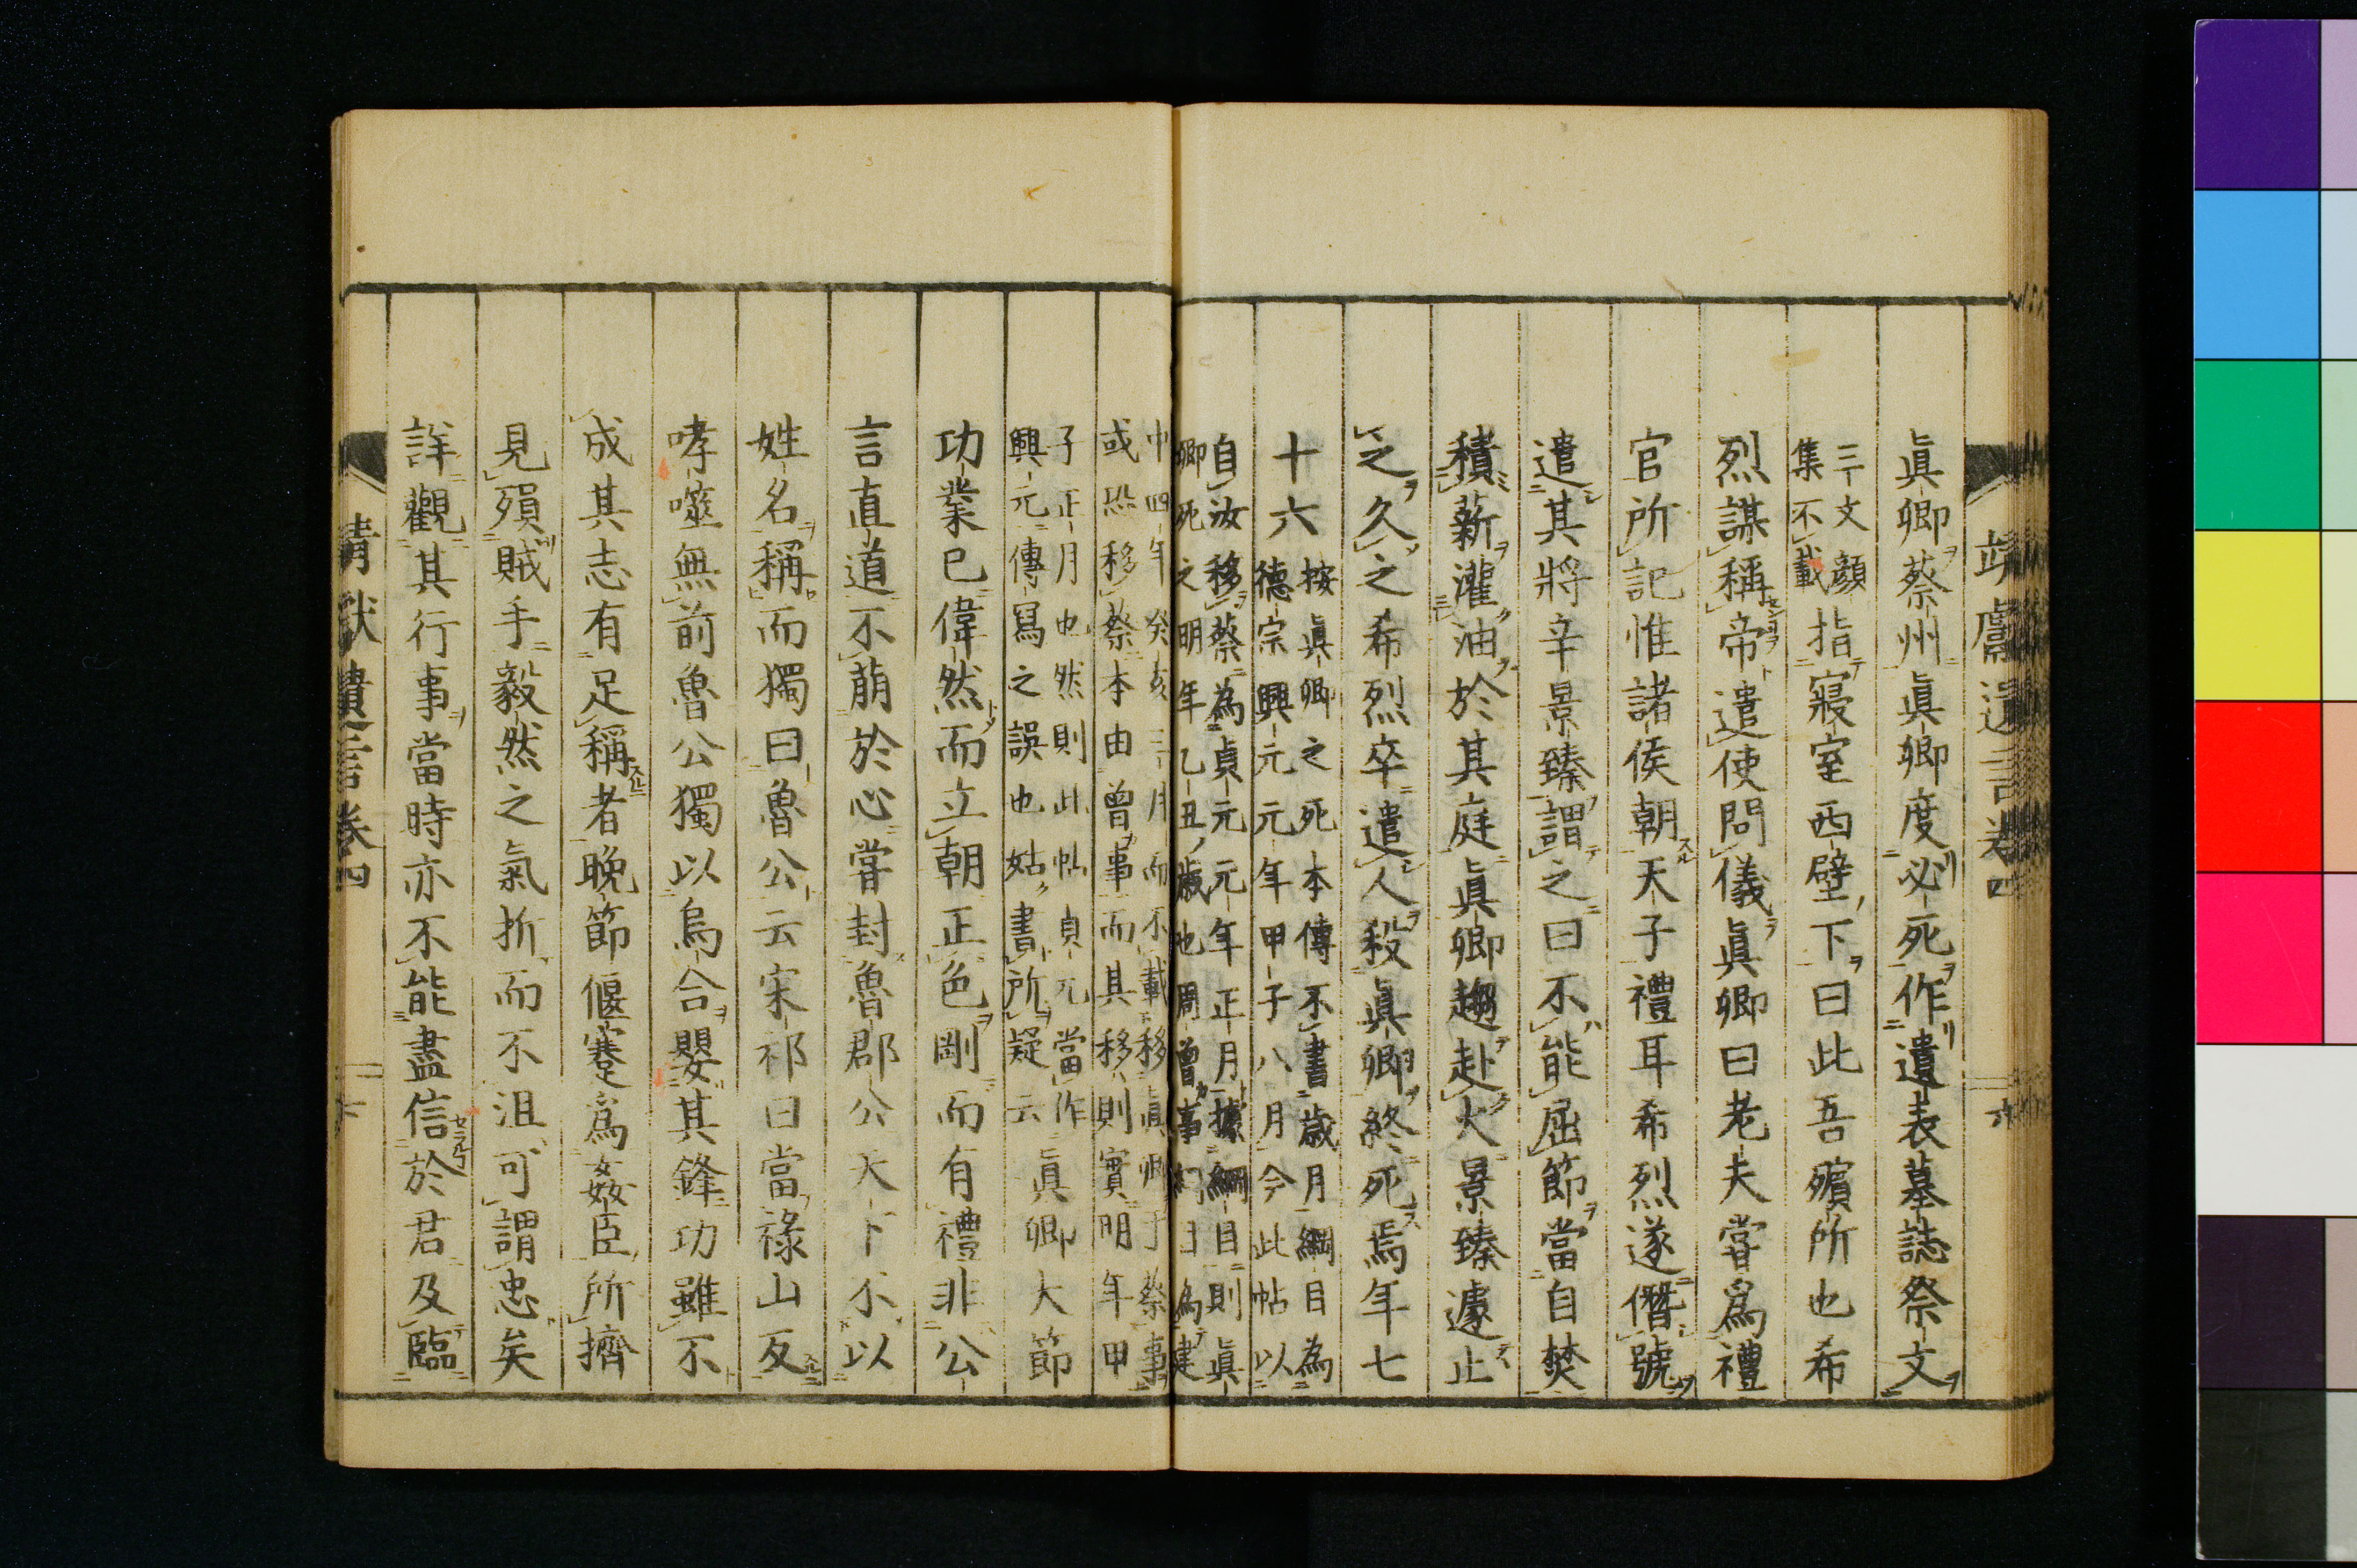 靖獻遺言卷四
六
眞卿蔡州眞卿度必死作遺表墓誌祭文
三文顔
集不載
指寢室西壁下曰此吾殯所也希
烈謀稱帝遣使問儀眞卿曰老夫嘗爲禮
官所記惟諸侯朝天子禮耳希烈遂僭號
遣其將辛景臻謂之曰不能屈節當自焚
積薪灌油於其庭眞卿趨赴火景臻遽止
之久之希烈卒遣人殺眞卿終死焉年七
十六
按眞卿之死本傳不書歳月綱目為
德宗興元元年甲子八月今此帖以
自汝移蔡為貞元元年正月據綱目則眞
卿死之明年乙丑歳也周曾事綱目為建
中四年癸亥三月而不載移眞卿于蔡事
或恐移蔡本由曾事而其移則實明年甲
子正月也然則此帖貞元當作
興元傳寫之誤也姑書所疑云
眞卿大節
功業已偉然而立朝正色剛而有禮非公
言直道不萠於心嘗封魯郡公天下不以
姓名稱而獨曰魯公云宋祁曰當祿山反
哮噬無前魯公獨以烏合嬰其鋒功雖不
成其志有足稱者晚節偃蹇爲姦臣所擠
見殞賊手毅然之氣折而不沮可謂忠矣
詳觀其行事當時亦不能盡信於君及臨
靖獻遺言卷四